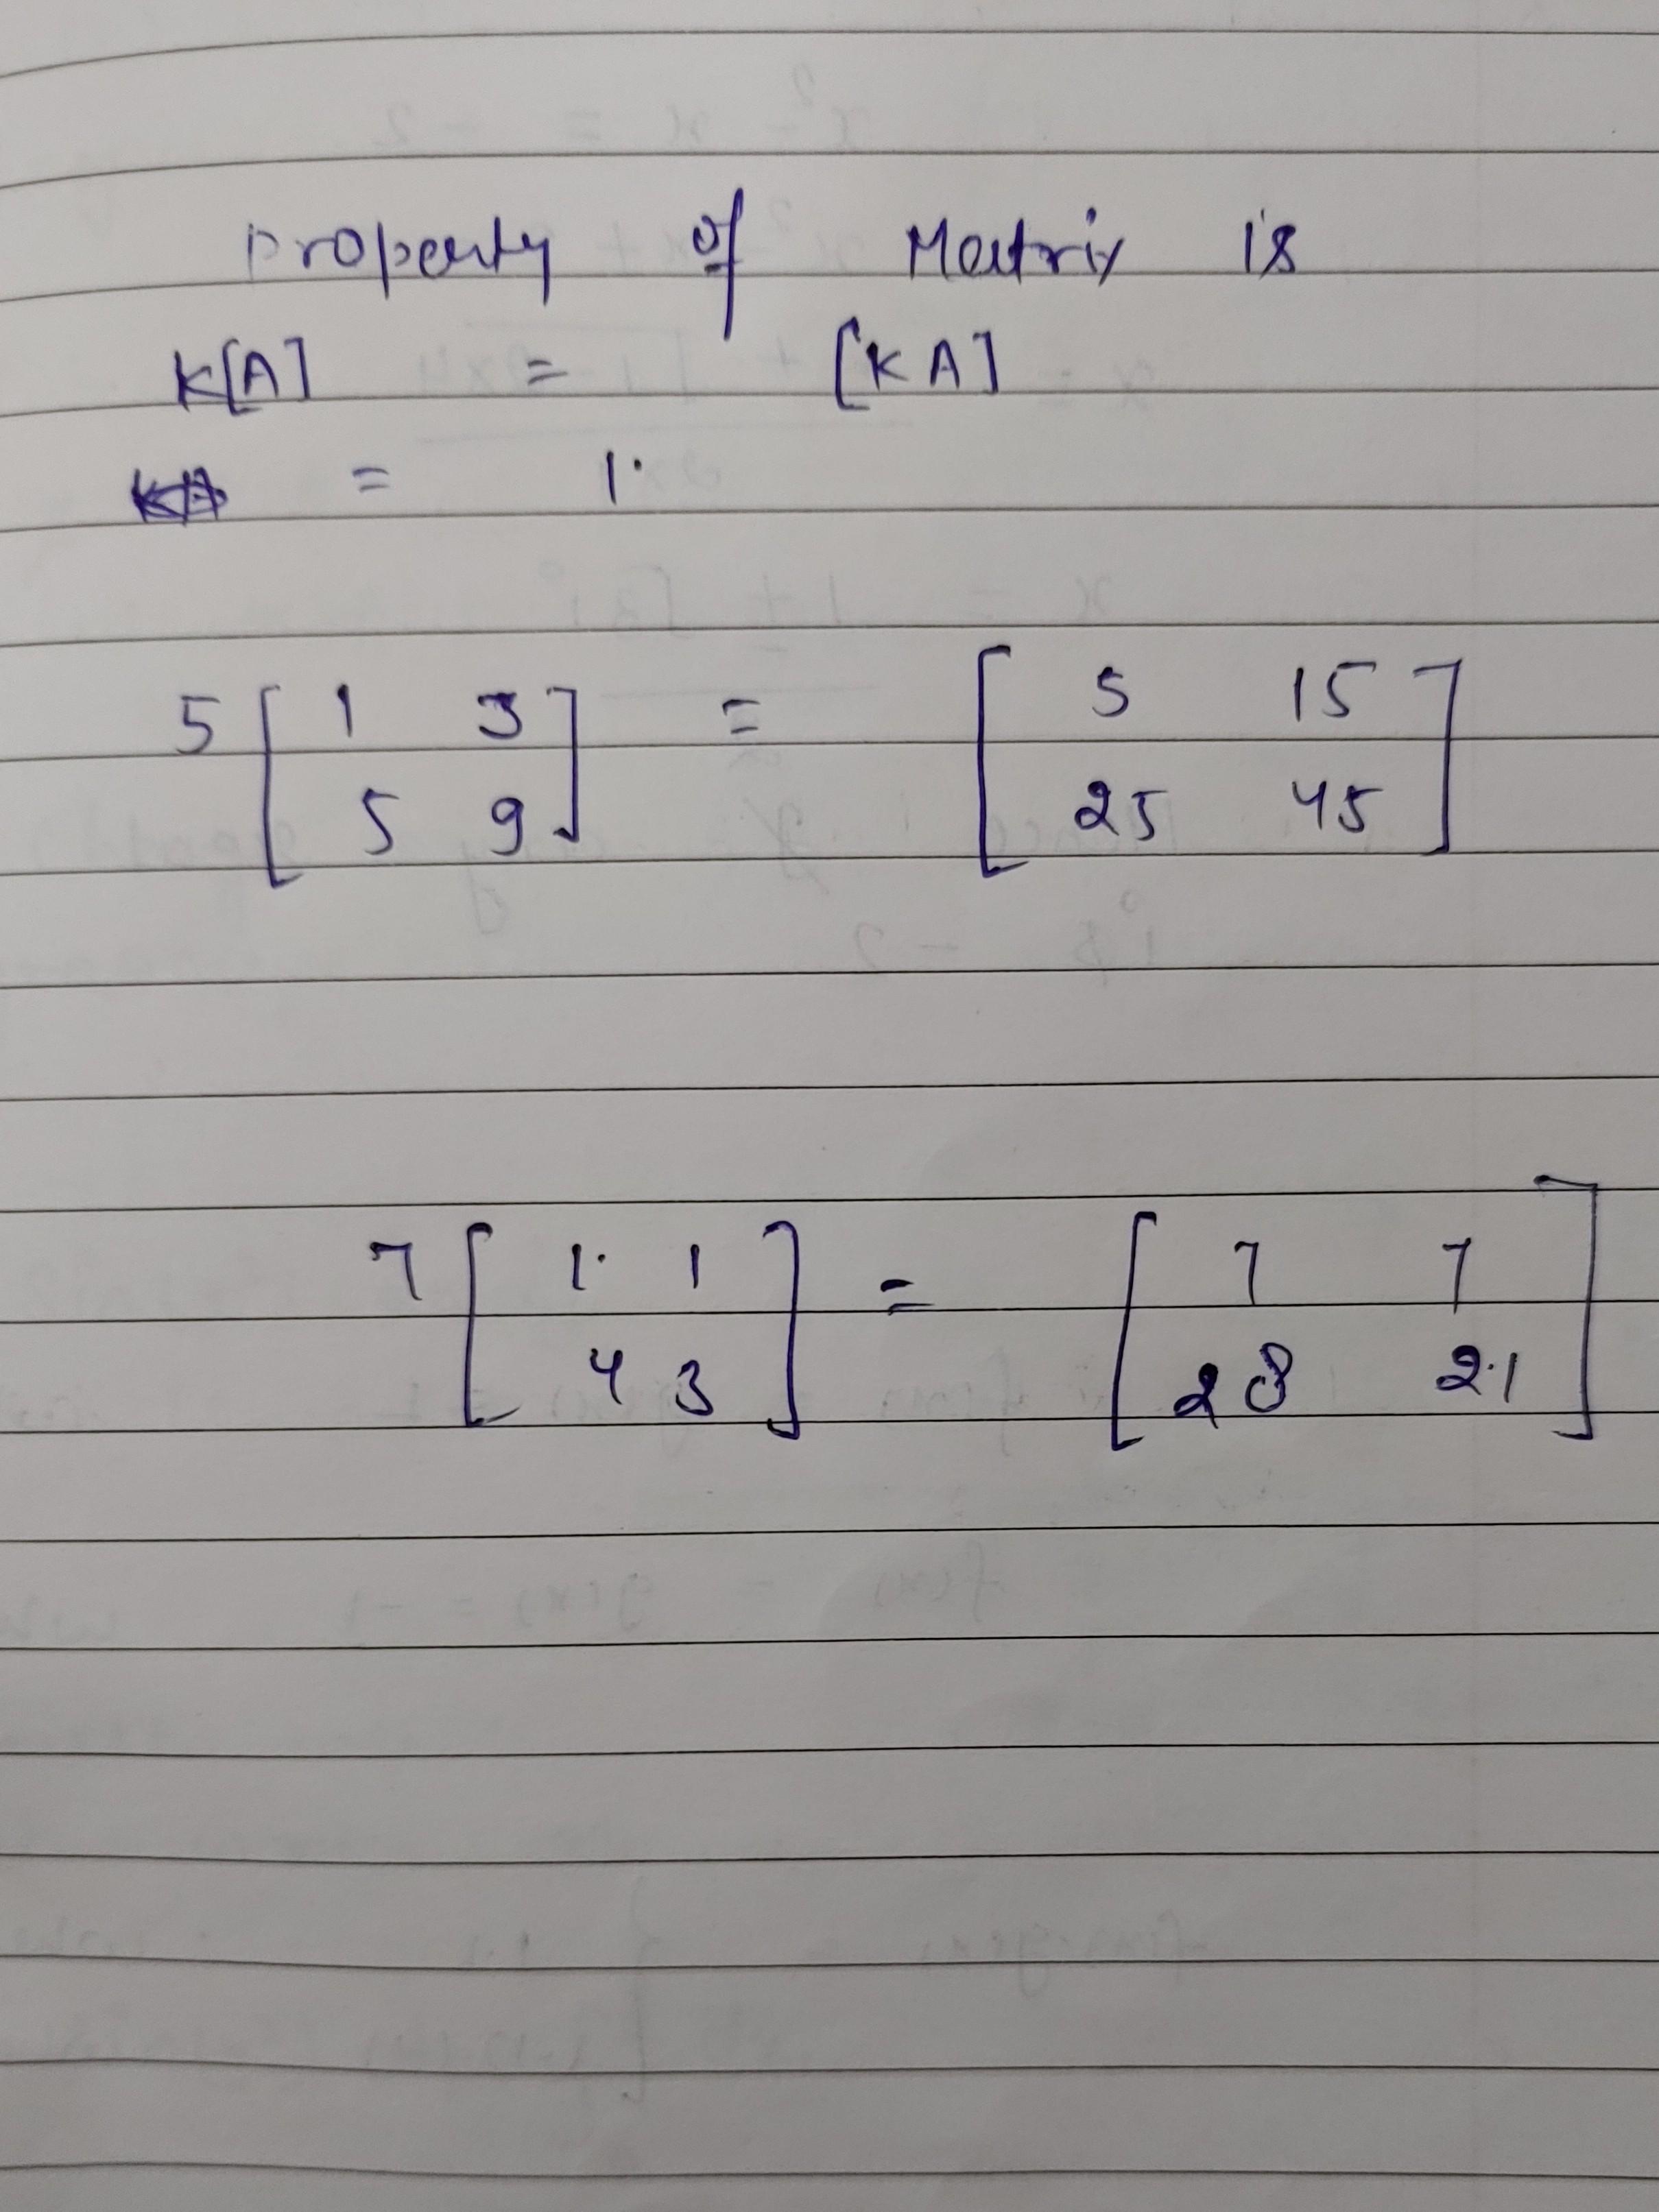 Property of Matrix is
K[A] = [KA]
= 1.
5 [ 1 3 = [ 5 15 ]
5 9 ] 25 45
7 [ 1. 1 ] = [ 7 7 ]
4 3 28 2.1